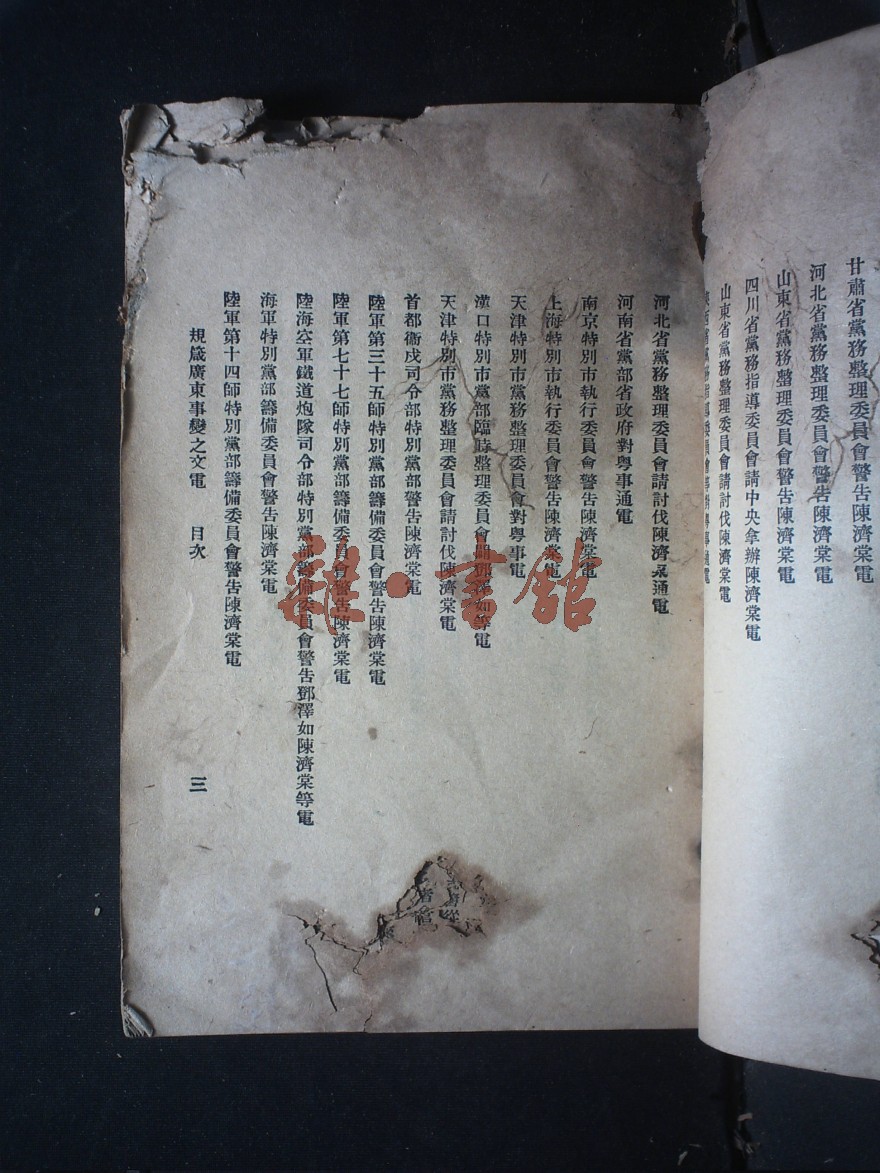 甘肅省黨務整理委員會警告陳濟棠電
河北省黨務整理委員會警告陳濟棠電
山東省黨務整理委員會警告陳濟棠電
四川省黨務指導委員會請中央拿辦陳濟棠電
山東省黨務整理委員會請討伐陳濟棠電
黨務指導委員會等對粵事通電
河北省黨務整理委員會請討伐陳濟棠通電
河南省黨部省政府對粵事通電
南京特別市執行委員會警告陳濟棠電
上海特別市執行委員會警告陳濟棠電
天津特別市黨務整理委員會對粵事電
漢口特別市黨部臨時整理委員會鄧澤如等電
天津特別市黨務整理委員會請討伐陳濟棠電
首都衞戍司令部特別黨部警告陳濟棠電
陸軍第三十五師特別黨部籌備委員會警告陳濟棠電
陸軍第七十七師特別黨部籌備委員會警告陳濟棠電
陸海空軍鐵道炮隊司令部特別黨部籌備委員會警告鄧澤如陳濟棠等電
海軍特別黨部籌備委員會警告陳濟棠電
陸軍第十四師特別黨部籌備委員會警告陳濟棠電
規箴廣東事變之文電 目次 三
雜·書館